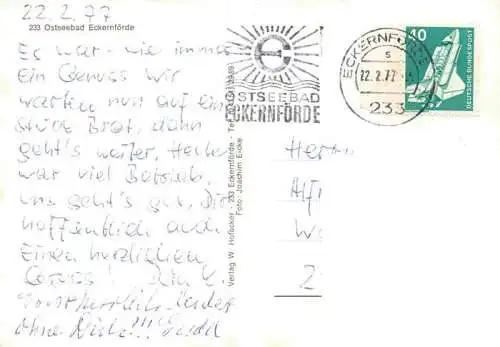 22.2.77
233 Ostseebad Eckernförde
Es war - wie immer
ein Genuss wir
warten nun auf ein
Stück Brot, dann
geht's weiter, Heute
war viel Betrieb,
uns geht's gut, Dir
hoffentlich auch
Einen herzlichen
Gruss!
ohne
OSTSEEBAD
ECKERNFÖRDE
ECKERNFÖRDE
s
22.2.77
233
40
DEUTSCHE BUNDESPOST
Verlag W. Hofacker - 233 Eckernförde
Foto: Joachim
Herrn
Alf
W
2